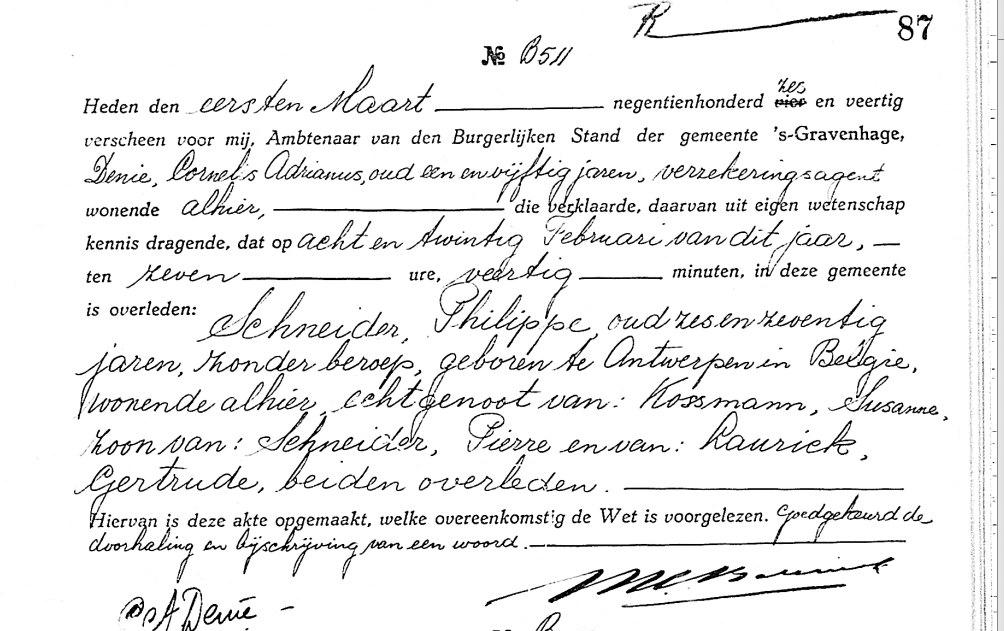 R
87
№ B511
Heden den eersten Maart negentienhonderd zes vier en veertig
verscheen voor mij, Ambtenaar van den Burgerlijken Stand der gemeente 's-Gravenhage,
Denie, Cornelis Adrianus, oud een en vijftig jaren, verzekeringsagent
wonende alhier, die verklaarde, daarvan uit eigen wetenschap
kennis dragende, dat op acht en twintig Februari van dit jaar,
ten zeven ure, veertig minuten, in deze gemeente
is overleden: Schneider, Philippe, oud zes en zeventig
jaren, zonder beroep, geboren te Antwerpen in België,
wonende alhier, echtgenoot van: Kossmann, Susanne,
zoon van: Schneider, Pierre en van: Laurick,
Gertrude, beiden overleden.
Hiervan is deze akte opgemaakt, welke overeenkomstig de Wet is voorgelezen. Goedgekeurd de
doorhaling en bijschrijving van een woord.
CA Denie
№ B